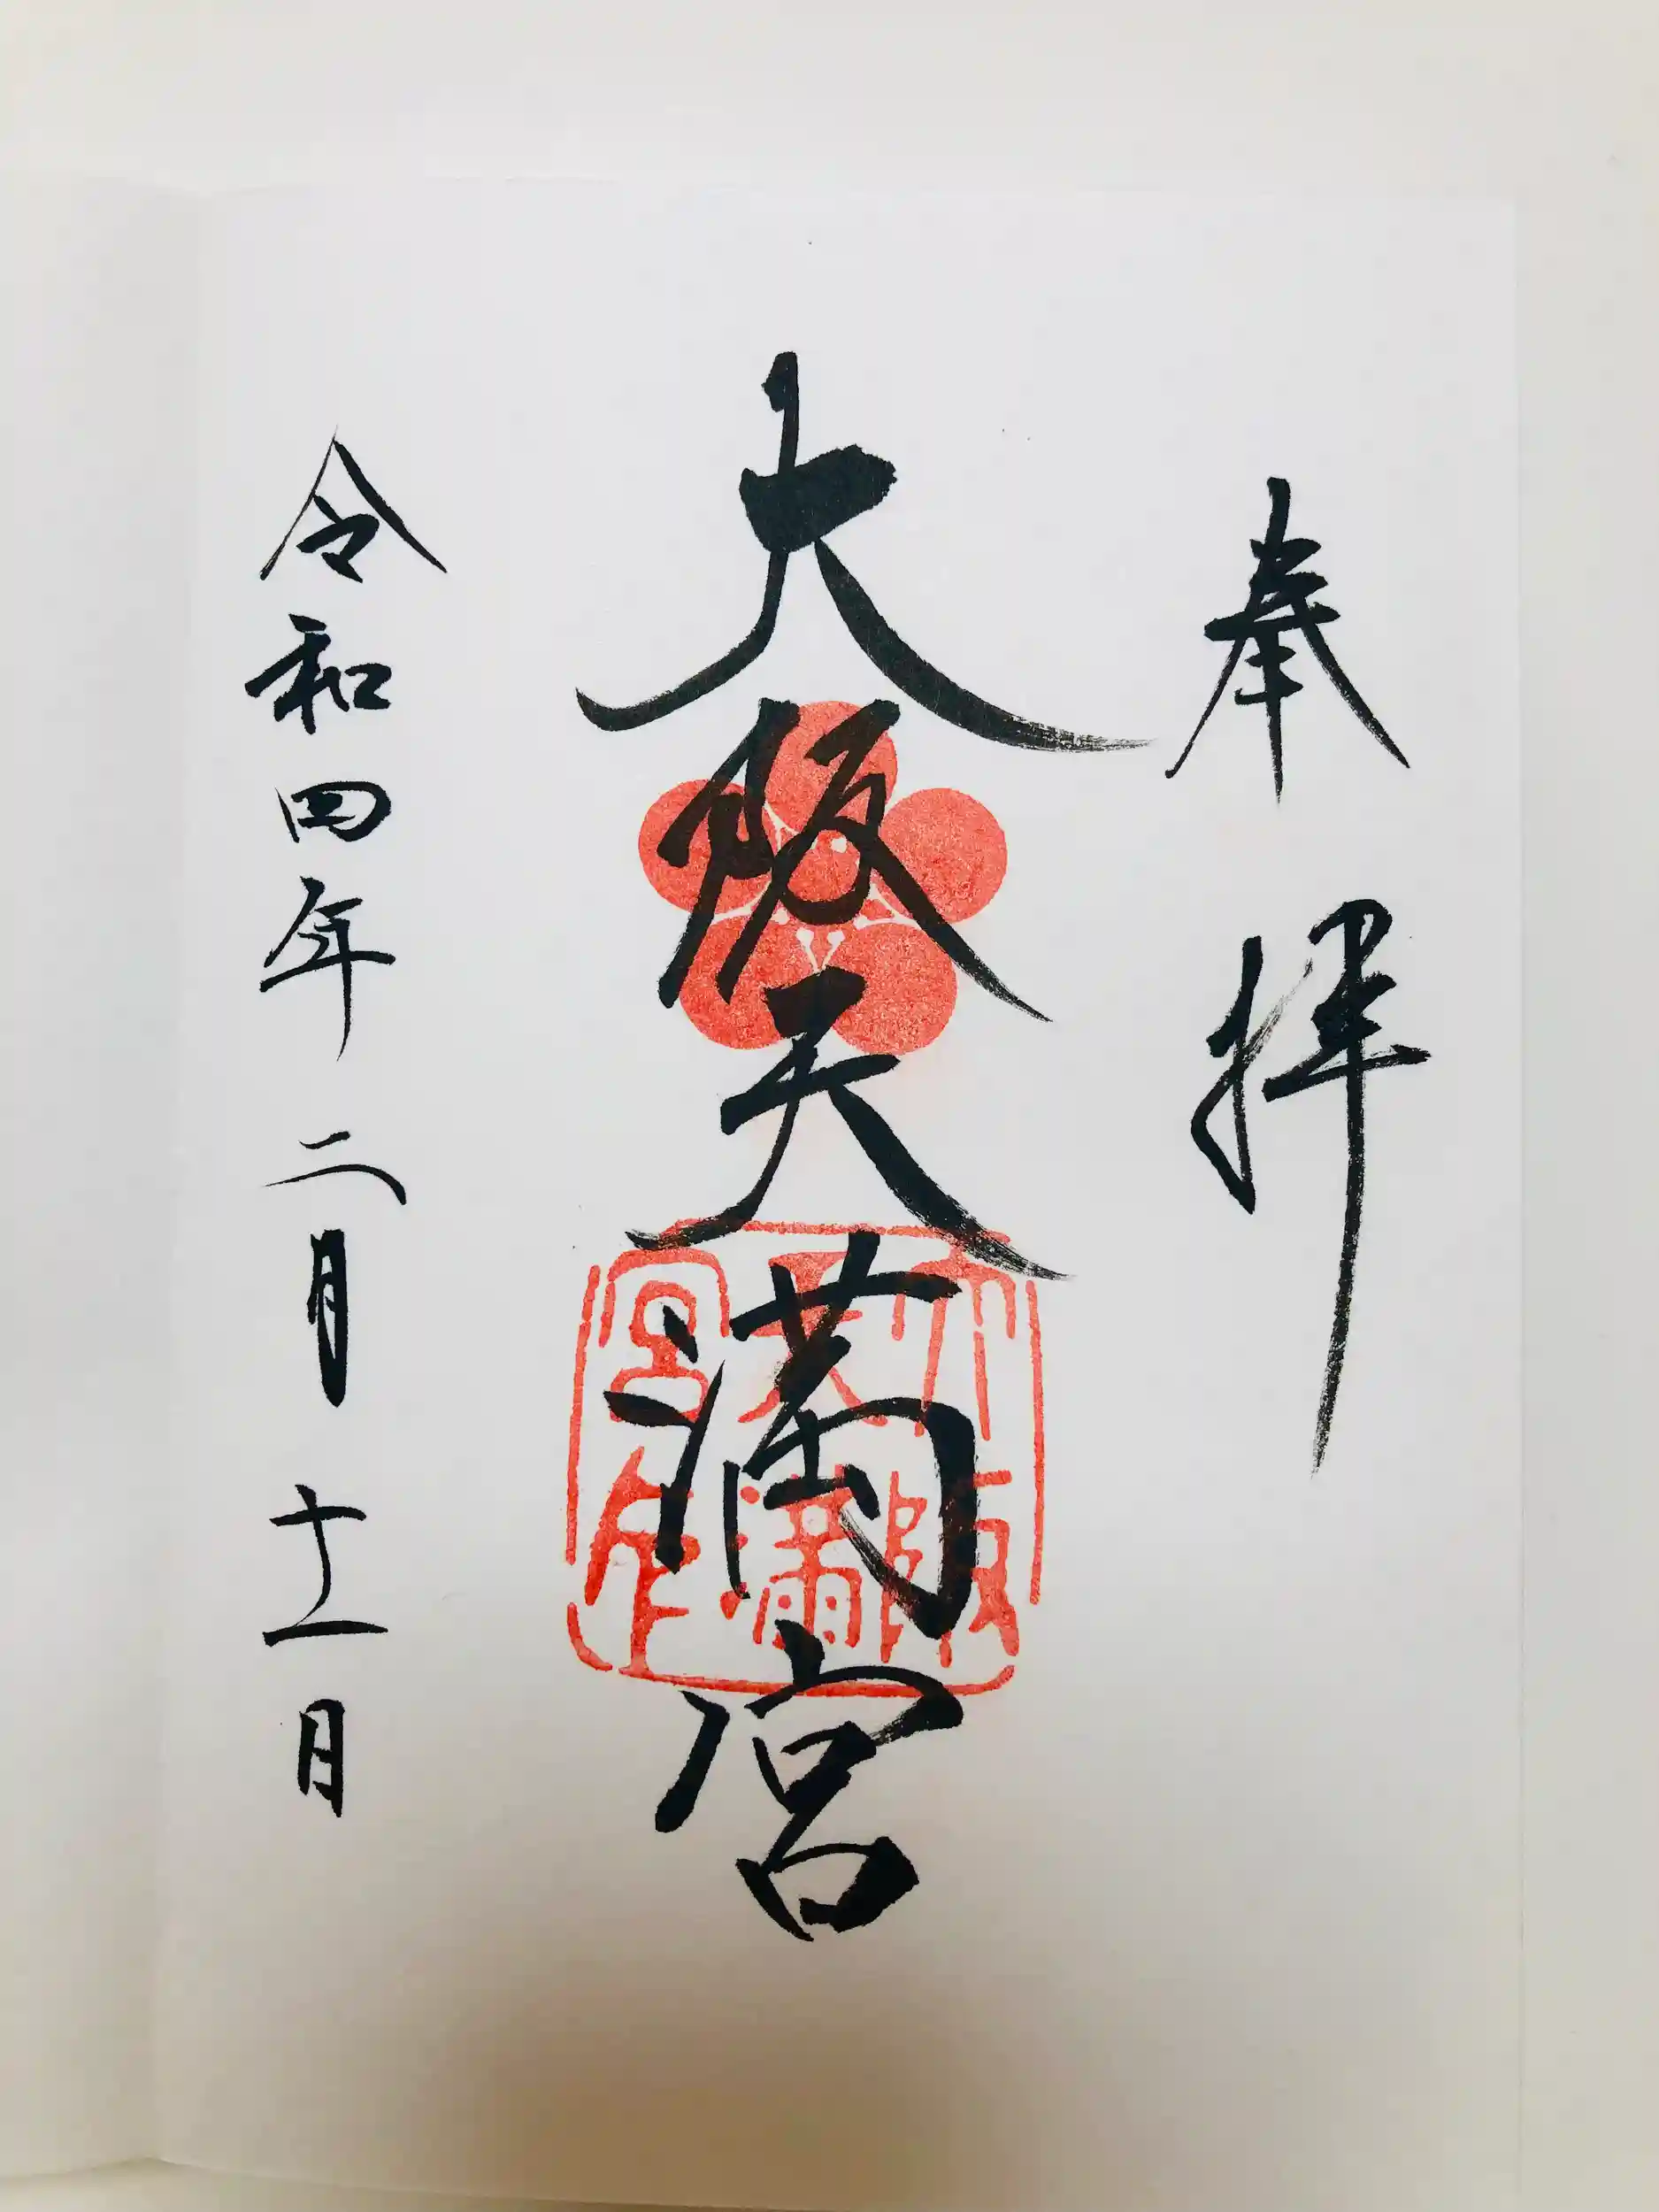 奉拝
大阪天満宮
令和四年二月十一日
大阪
天満
宮印